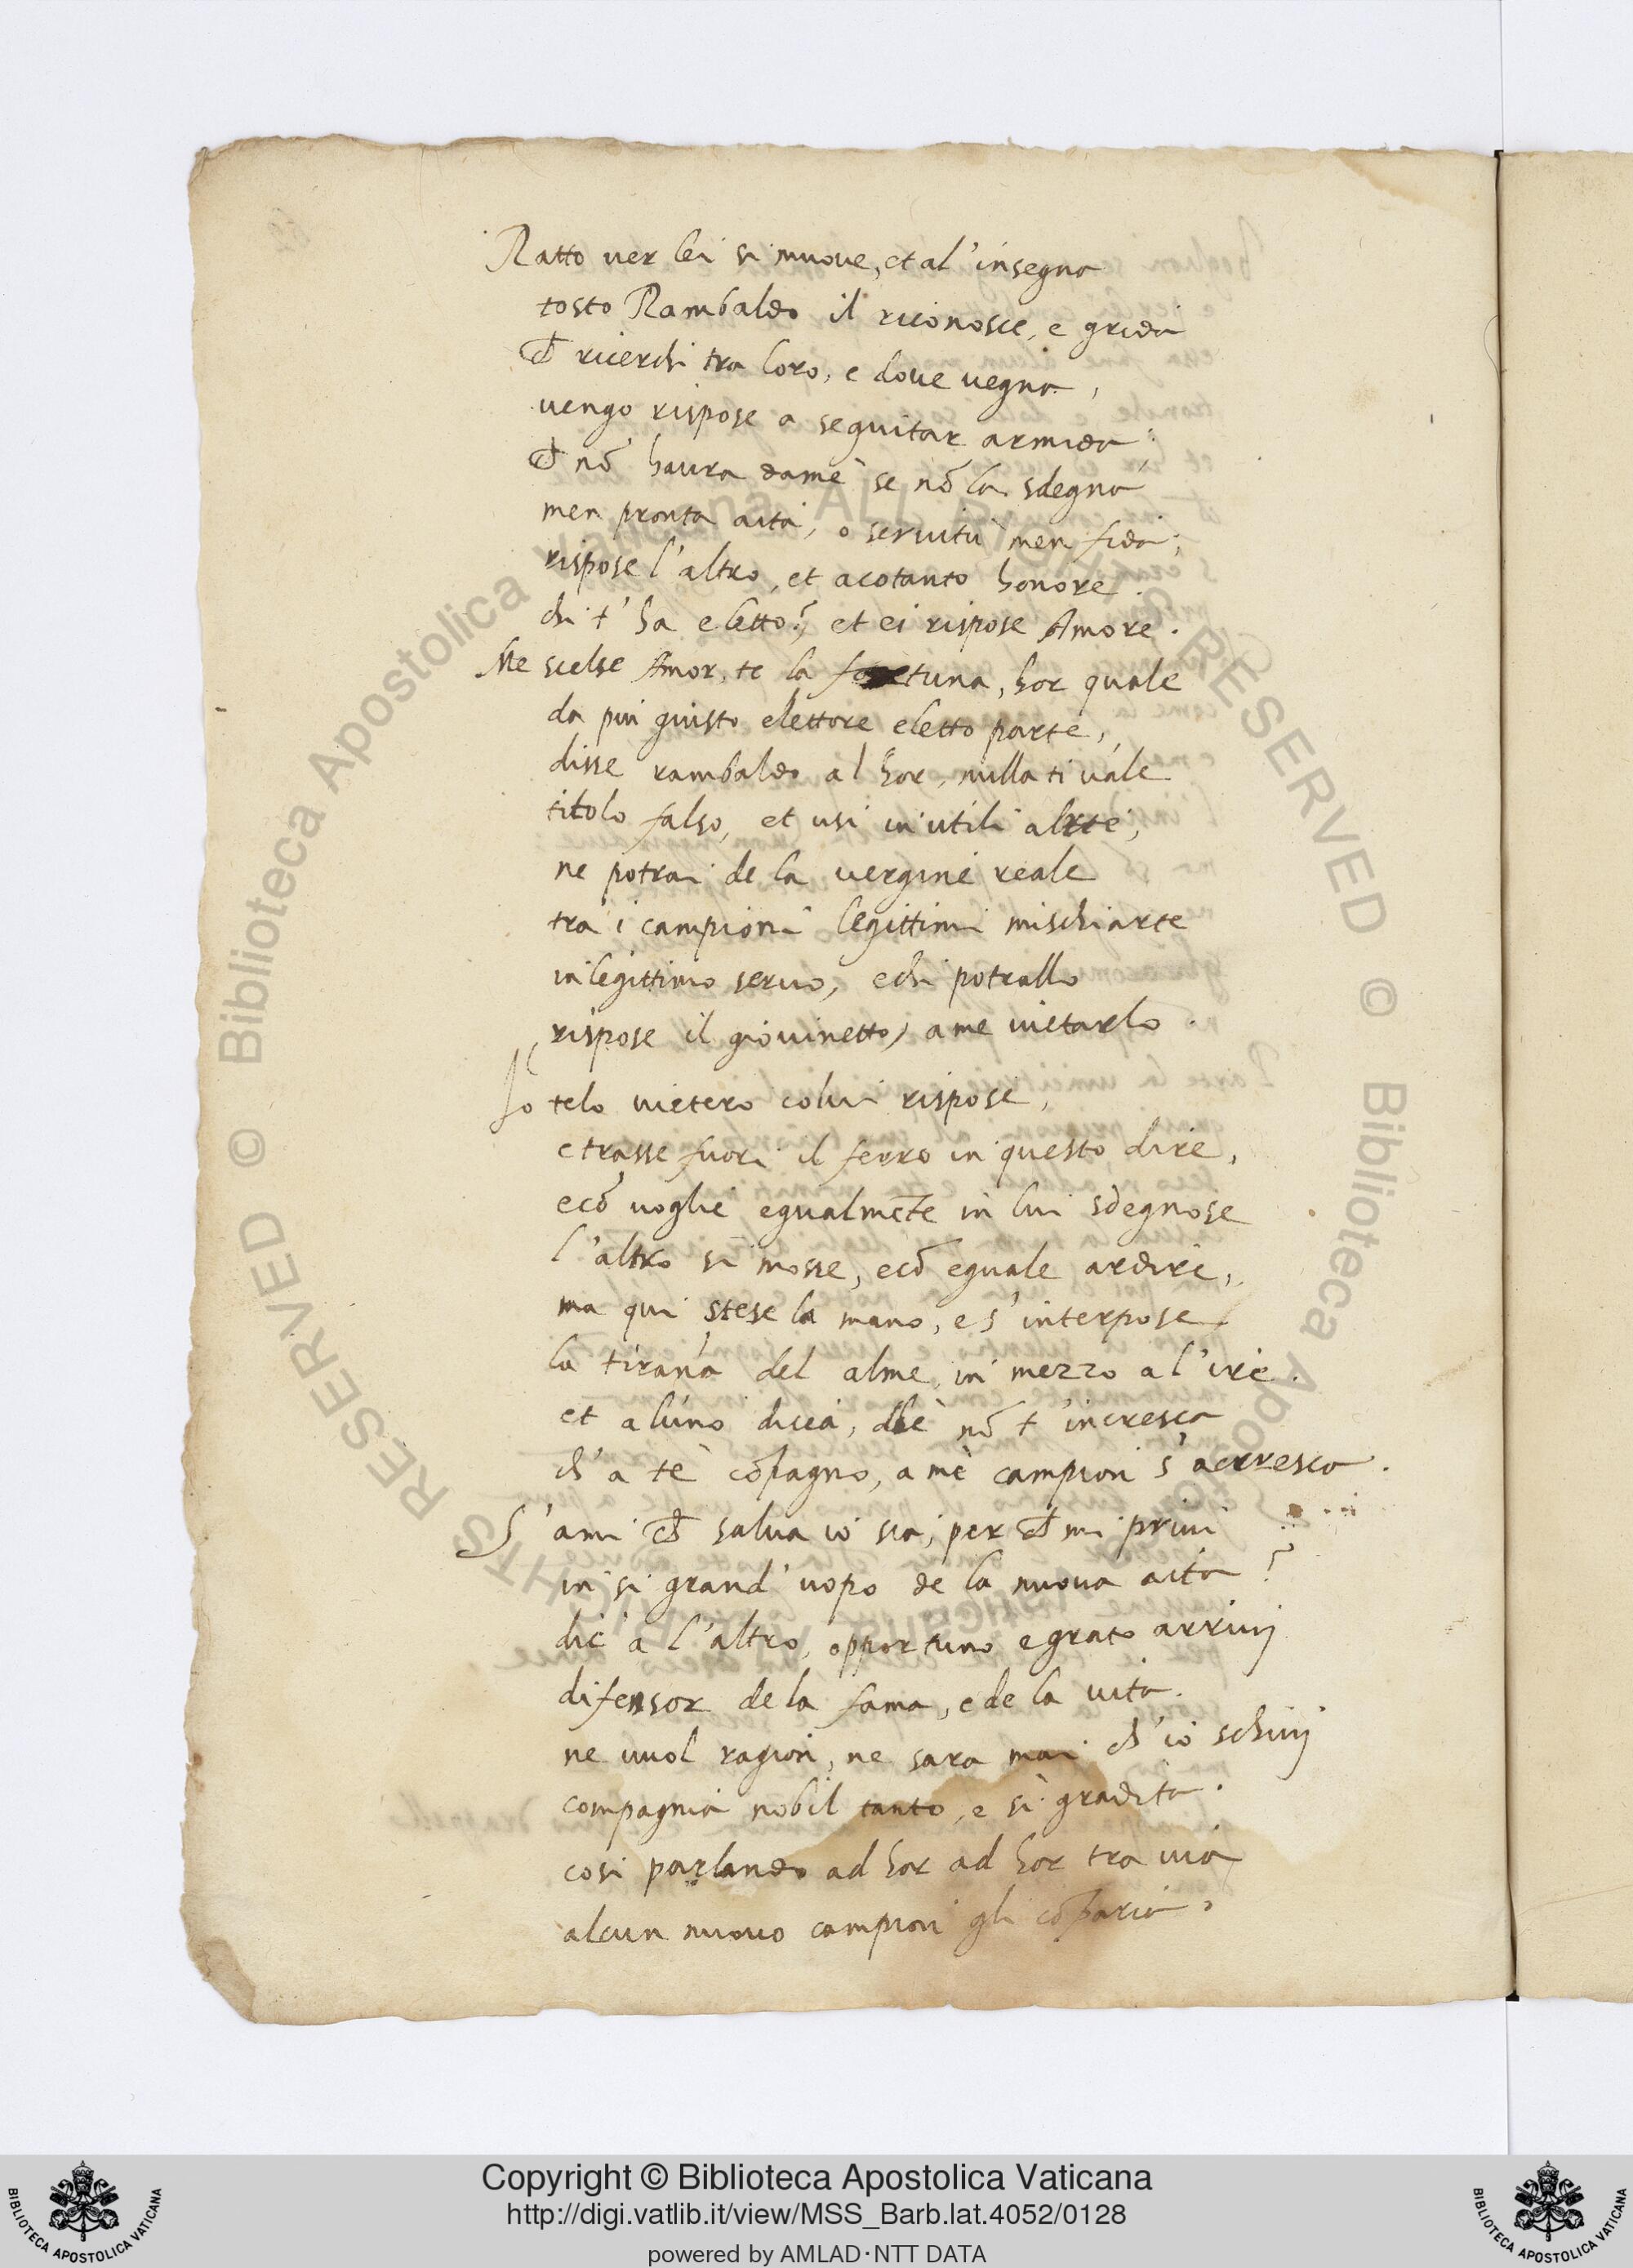 Ratto uer lei si muoue, et al'insegna
tosto Rambaldo il riconosce, e grida
Che ricerchi tra loro, e doue uegna,
uengo rispose a seguitar armida;
Che nō haura damè se nō la sdegna
men pronta aita, o seruitù men fida;
rispose l'altro, et acotanto honore
chi t'ha eletto? et ei rispose Amore.
Me scelse Amor, te la fortuna, hor quale
da piu giusto elettore eletto parte,
disse rambaldo al hor, nulla ti uale
titolo falso, et usi in utili arte,
ne potrai de la uergine reale
tra i campioni legittimi mischiarte
inlegittimo seruo, echi potrallo
rispose il giouinetto, ame uietarlo.
Io telo uietero colui rispose,
e trasse fuori il ferro in questo dire,
ecō uoglie egualmēte in lui sdegnose
l'altro si mosse, ecō eguale ardire,
ma qui stese la mano, e s'interpose
la tirana del alme in mezzo a l'ire.
et a luno dicea, dhè nō t'incresca
ch'a tè cōpagno, a mè campion s'accresca.
S'ami che salua io sia, per che mi priui
in si grand' uopo de la nuoua aita?
dic' a l'altro, opportuno e grato arriuij
difensor de la fama, e de la uita.
ne uuol ragion, ne sara mai ch'io schiuij
compagnia nobil tanto, e si gradita.
cosi parlando ad hor ad hor tra uia
alcun nuouo campion gli cōparia.
Copyright © Biblioteca Apostolica Vaticana
http://digi.vatlib.it/view/MSS_Barb.lat.4052/0128
powered by AMLAD·NTT DATA
BIBLIOTECA APOSTOLICA VATICANA
BIBLIOTECA APOSTOLICA VATICANA